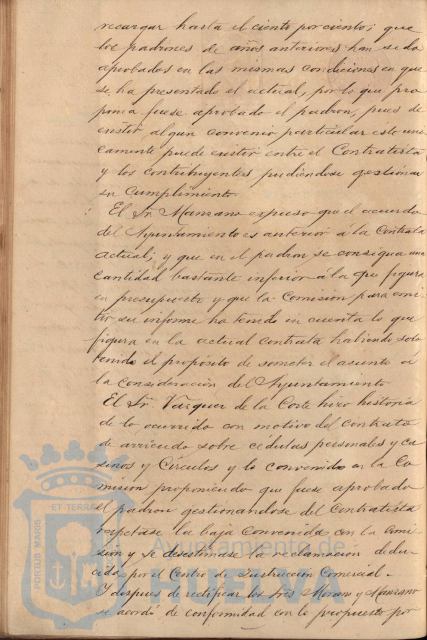 recargar hasta el ciento por ciento; que
los padrones de años anteriores han sido
aprobados en las mismas condiciones en que
se ha presentado el actual, por lo que pro
ponia fuese aprobado el padron, pues de
existir algun convenio particular esto uni
camente puede existir entre el Contratista
y los contribuyentes pudiendose gestionar
su cumplimiento
El Sr. Mamano expuso que el acuerdo
del Ayuntamiento es anterior á la Contrata
actual; y que en el padron se consigna una
cantidad bastante inferior á la que figura
en presupuesto y que la Comisión para emi
tir su informe ha tenido en cuenta lo que
figura en la actual contrata habiendo solo
tenido el propósito de someter el asunto á
la consideración del Ayuntamiento
El Sr. Vazquez de la Corte hizo historia
de lo ocurrido con motivo del Contrato
de arriendo sobre cédulas personales y ca
sinos y Círculos y lo convenido en la Co
misión proponiendo que fuese aprobado
el padron gestionandose del Contratista
respetase la baja convenida con la Comi
sión y se desestimase la reclamación dedu
cida por el Centro de Instrucción Comercial.
Y despues de rectificar los Sres Morano y
se acordó de conformidad con lo propuesto por
PORTUS MARIS ET TERRAE
Ayuntamiento de
HUELVA